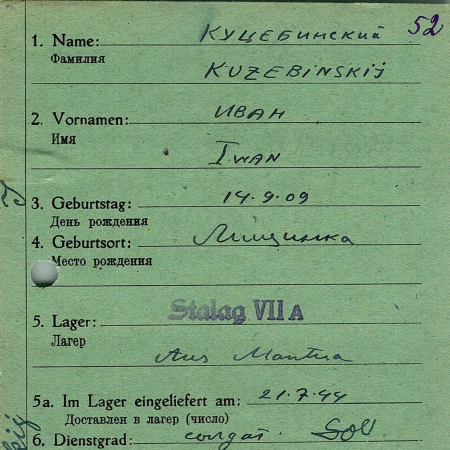 52
1. Name: КУЦЕБИНСКИЙ
Фамилия
KUZEBINSKIJ
2. Vornamen: ИВАН
Имя
IWAN
3. Geburtstag: 14.9.09
День рождения
4. Geburtsort: Лищинка
Место рождения
5. Lager: Stalag VII A
Лагерь
Aus Mantua
5a. Im Lager eingeliefert am: 21.7.44
Доставлен в лагерь (число)
6. Dienstgrad: солдат. Sol